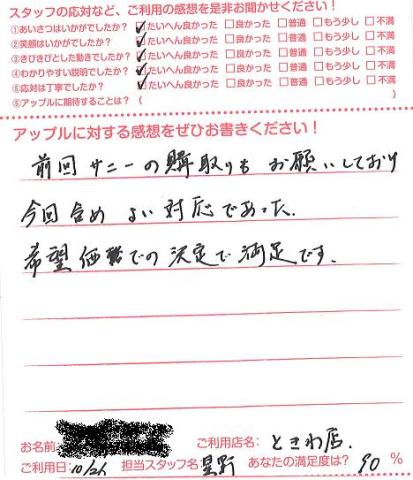 スタッフの応対など、ご利用の感想を是非お聞かせください！
①あいさつはいかがでしたか？ ☑たいへん良かった □良かった □普通 □もう少し □不満
②笑顔はいかがでしたか？ ☑たいへん良かった □良かった □普通 □もう少し □不満
③きびきびとした動きでしたか？ ☑たいへん良かった □良かった □普通 □もう少し □不満
④わかりやすい説明でしたか？ ☑たいへん良かった □良かった □普通 □もう少し □不満
⑤応対は丁寧でしたか？ ☑たいへん良かった □良かった □普通 □もう少し □不満
⑥アップルに期待することは？（ ）
アップルに対する感想をぜひお書きください！
前回サニーの購取りもお願いしており
今回含め よい対応であった.
希望価格での決定で満足です.
お名前: ご利用店名: ときわ店.
ご利用日: 10/21 担当スタッフ名: 星野 あなたの満足度は？ 90 %